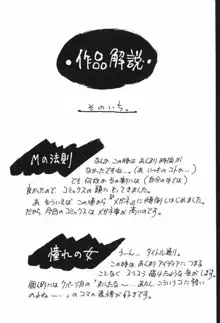 ・作品解説・
そのいち。
Mの法則
なんか、この時は、あんまり時間が
なかったですね…。(あ、いつものコトか…。)
でも何故かその割には(自分の中では)
良かったので、コミックスの頭にもってきました。
あ、そういえばこの頃から『メガネっ』に傾倒しはじめました。
だから今回のコミックスはメガネ率が高いのです。
憧れの女
うーん…タイトル通り。
この時は、あんまりアイディアにつまる
ことなくスラスラ描けたような気がします。
個人的には
のよね…。」のコマの表情が好きです。